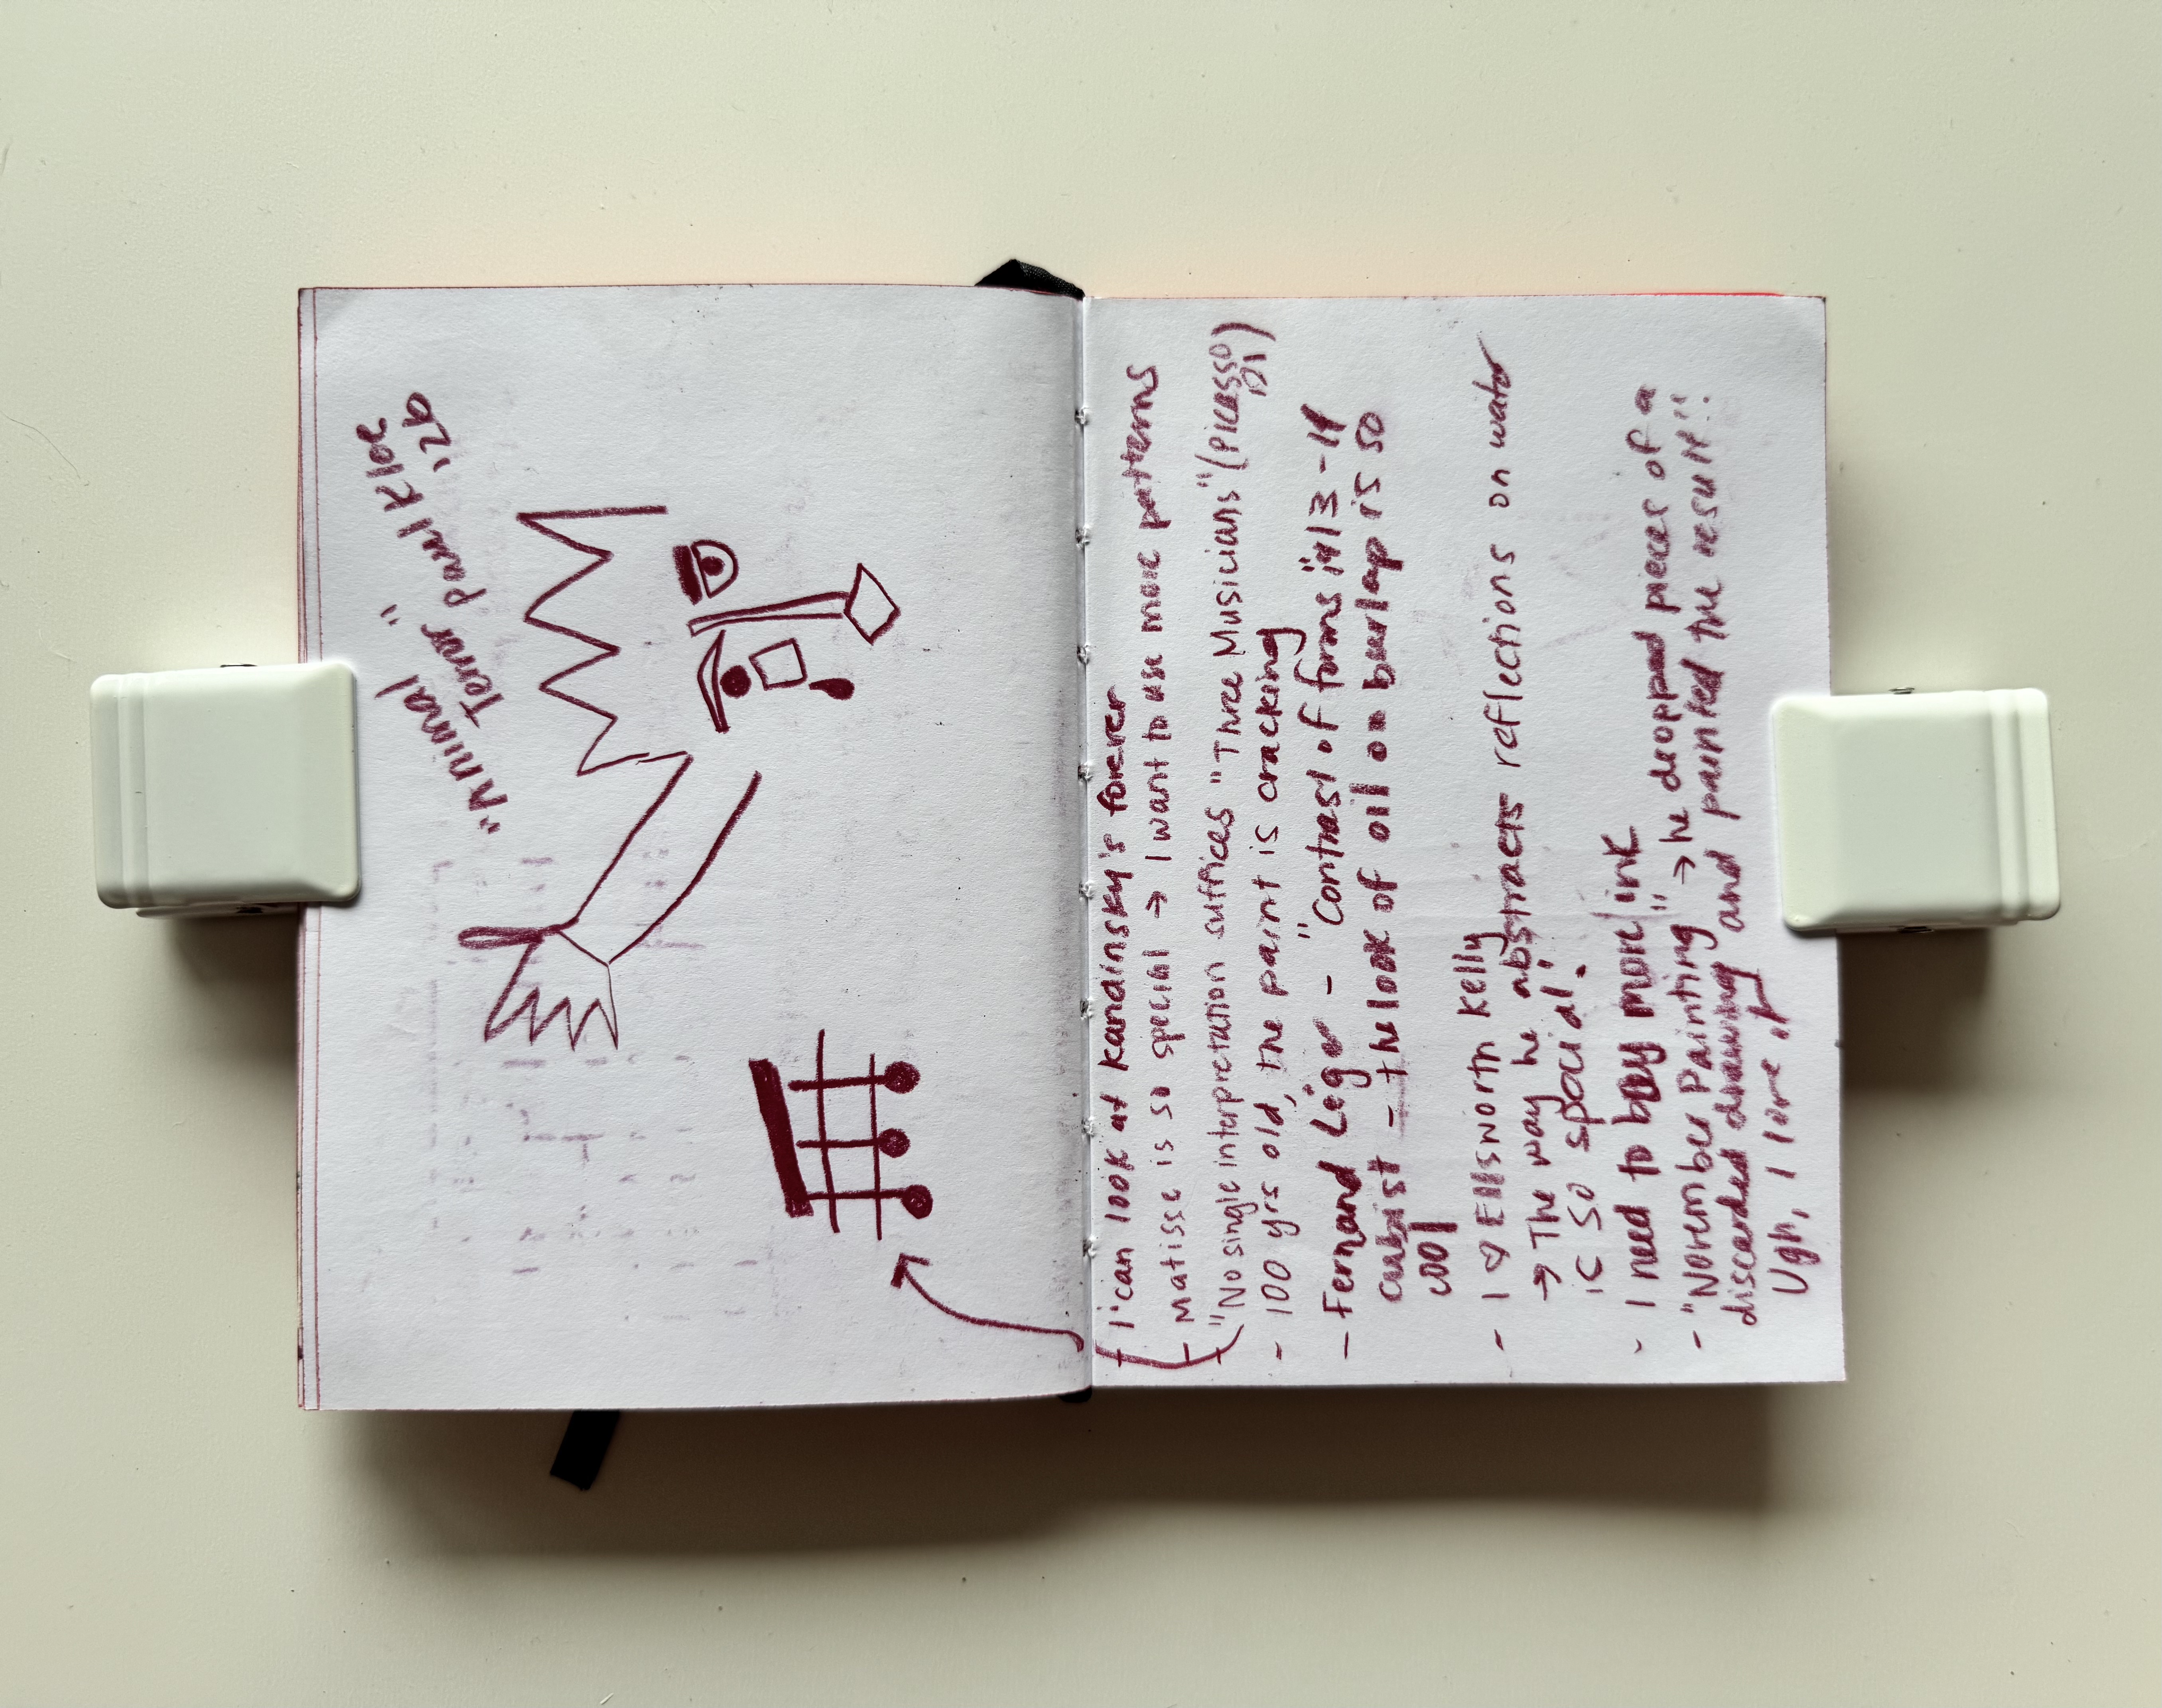 "Animal
Terror" Paul Klee
'26
- I can look at Kandinsky's forever
- Matisse is so special → I want to use more patterns
- "No single interpretation suffices "Three Musicians" (Picasso
'21)
- 100 yrs old, the paint is cracking
- Fernand Léger - "Contrast of forms" 1913-14
cubist - the look of oil on burlap is so
cool
- I ♡ Ellsworth Kelly
→ The way he abstracts reflections on water
is so special!
- I need to buy more ink
- "November Painting" → he dropped pieces of a
discarded drawing and painted the result!!
Ugh, I love it